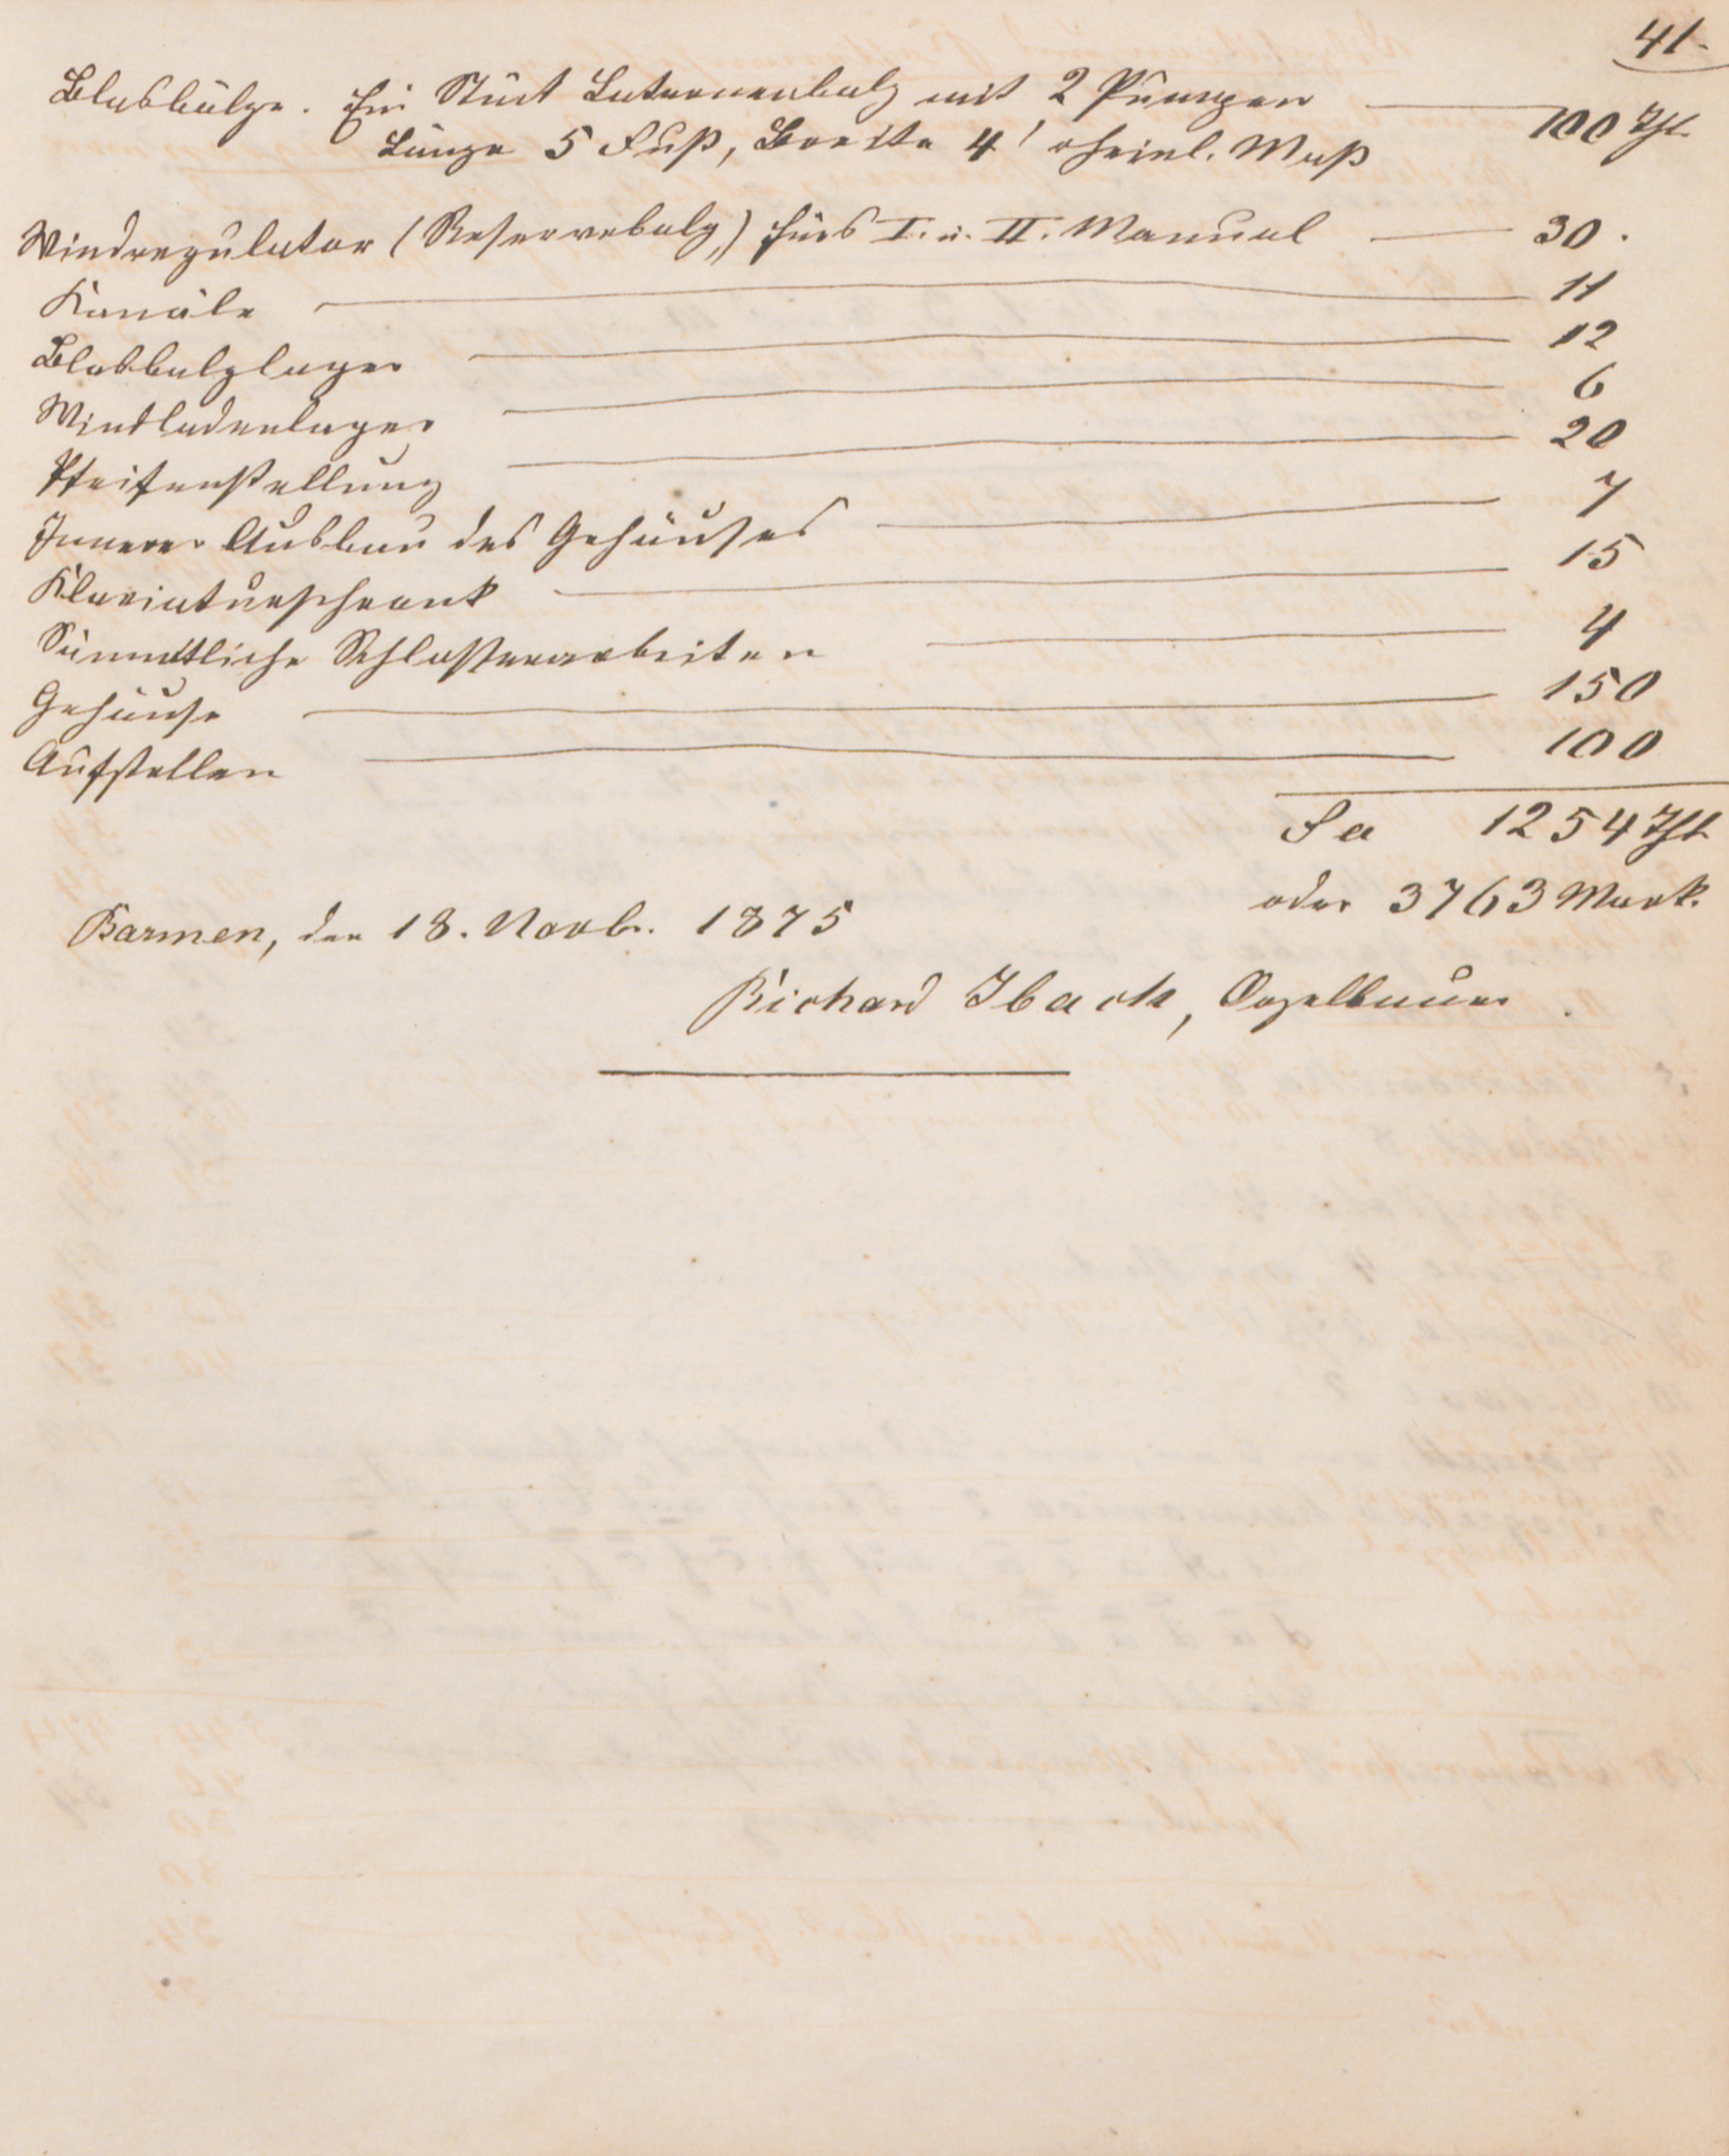 41.
Blasbälge. Ein Stück Laternenbalg mit 2 Pumpen
Länge 5 Fuß, Breite 4' rheinl. Maß 100 Thl
Windregulator (Reservebalg) fürs I. u. II. Manual 30.
Kanäle 11
Blasbalglager 12
Windladenlager 6
Pfeifenstellung 20
Innerer Ausbau des Gehäuses 7
Klaviaturschrank 15
Sämmtliche Schlosserarbeiten 4
Gehäuse 150
Aufstellen 100
Sa 1254 Thl
oder 3763 Mark.
Barmen, den 18. Novbr. 1875
Richard Ibach, Orgelbauer